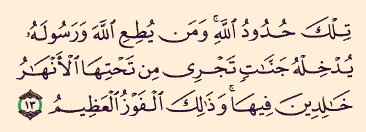 تِلْكَ حُدُودُ ٱللَّهِ ۚ وَمَن يُطِعِ ٱللَّهَ وَرَسُولَهُۥ
يُدْخِلْهُ جَنَّـٰتٍ تَجْرِى مِن تَحْتِهَا ٱلْأَنْهَـٰرُ
خَـٰلِدِينَ فِيهَا ۚ وَذَٰلِكَ ٱلْفَوْزُ ٱلْعَظِيمُ ١٣